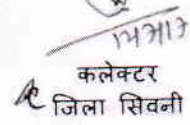 कलेक्टर
जिला सिवनी